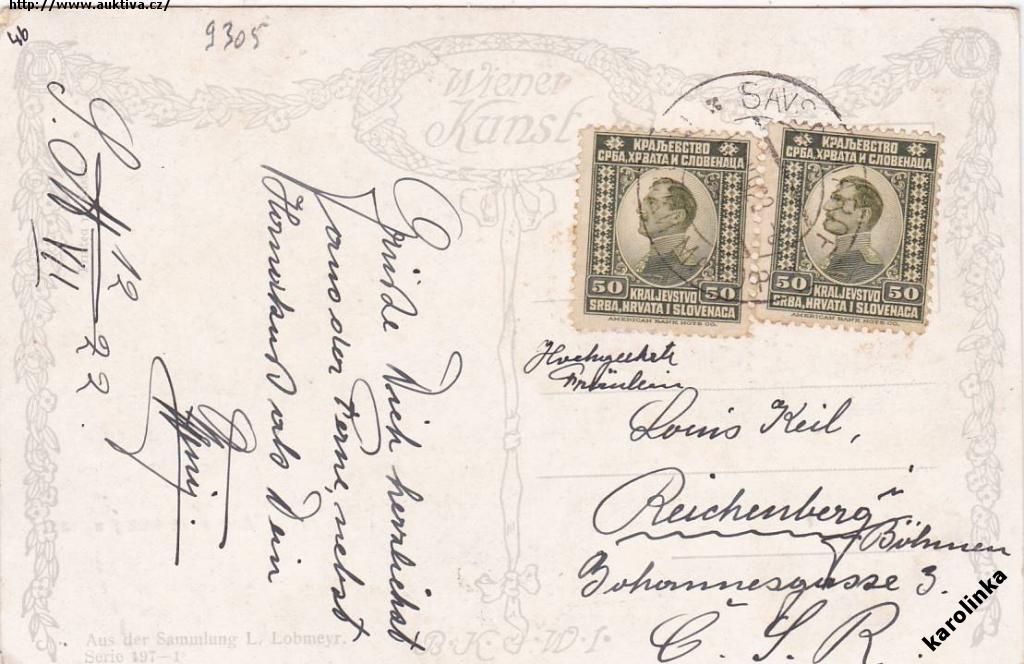 http://www.auktiva.cz/
36
9305
Wiener
Kunst
SAVS
КРАЉЕВСТВО
СРБА, ХРВАТА И СЛОВЕНАЦА
50 50
KRALJEVSTVO
SRBA, HRVATA I SLOVENACA
AMERICAN BANK NOTE CO.
КРАЉЕВСТВО
СРБА, ХРВАТА И СЛОВЕНАЦА
50 50
KRALJEVSTVO
SRBA, HRVATA I SLOVENACA
AMERICAN BANK NOTE CO.
12
VII
22
Grüße Dich herzlichst
aus der Ferne, nebst
als Dein
Hochgeehrte
Fräulein
Louis Keil,
Reichenberg
Böhmen
Johannesgasse 3.
Č. S. R.
Aus der Sammlung L. Lobmeyr.
Serie 197-1
B.K.W.I.
karolinka